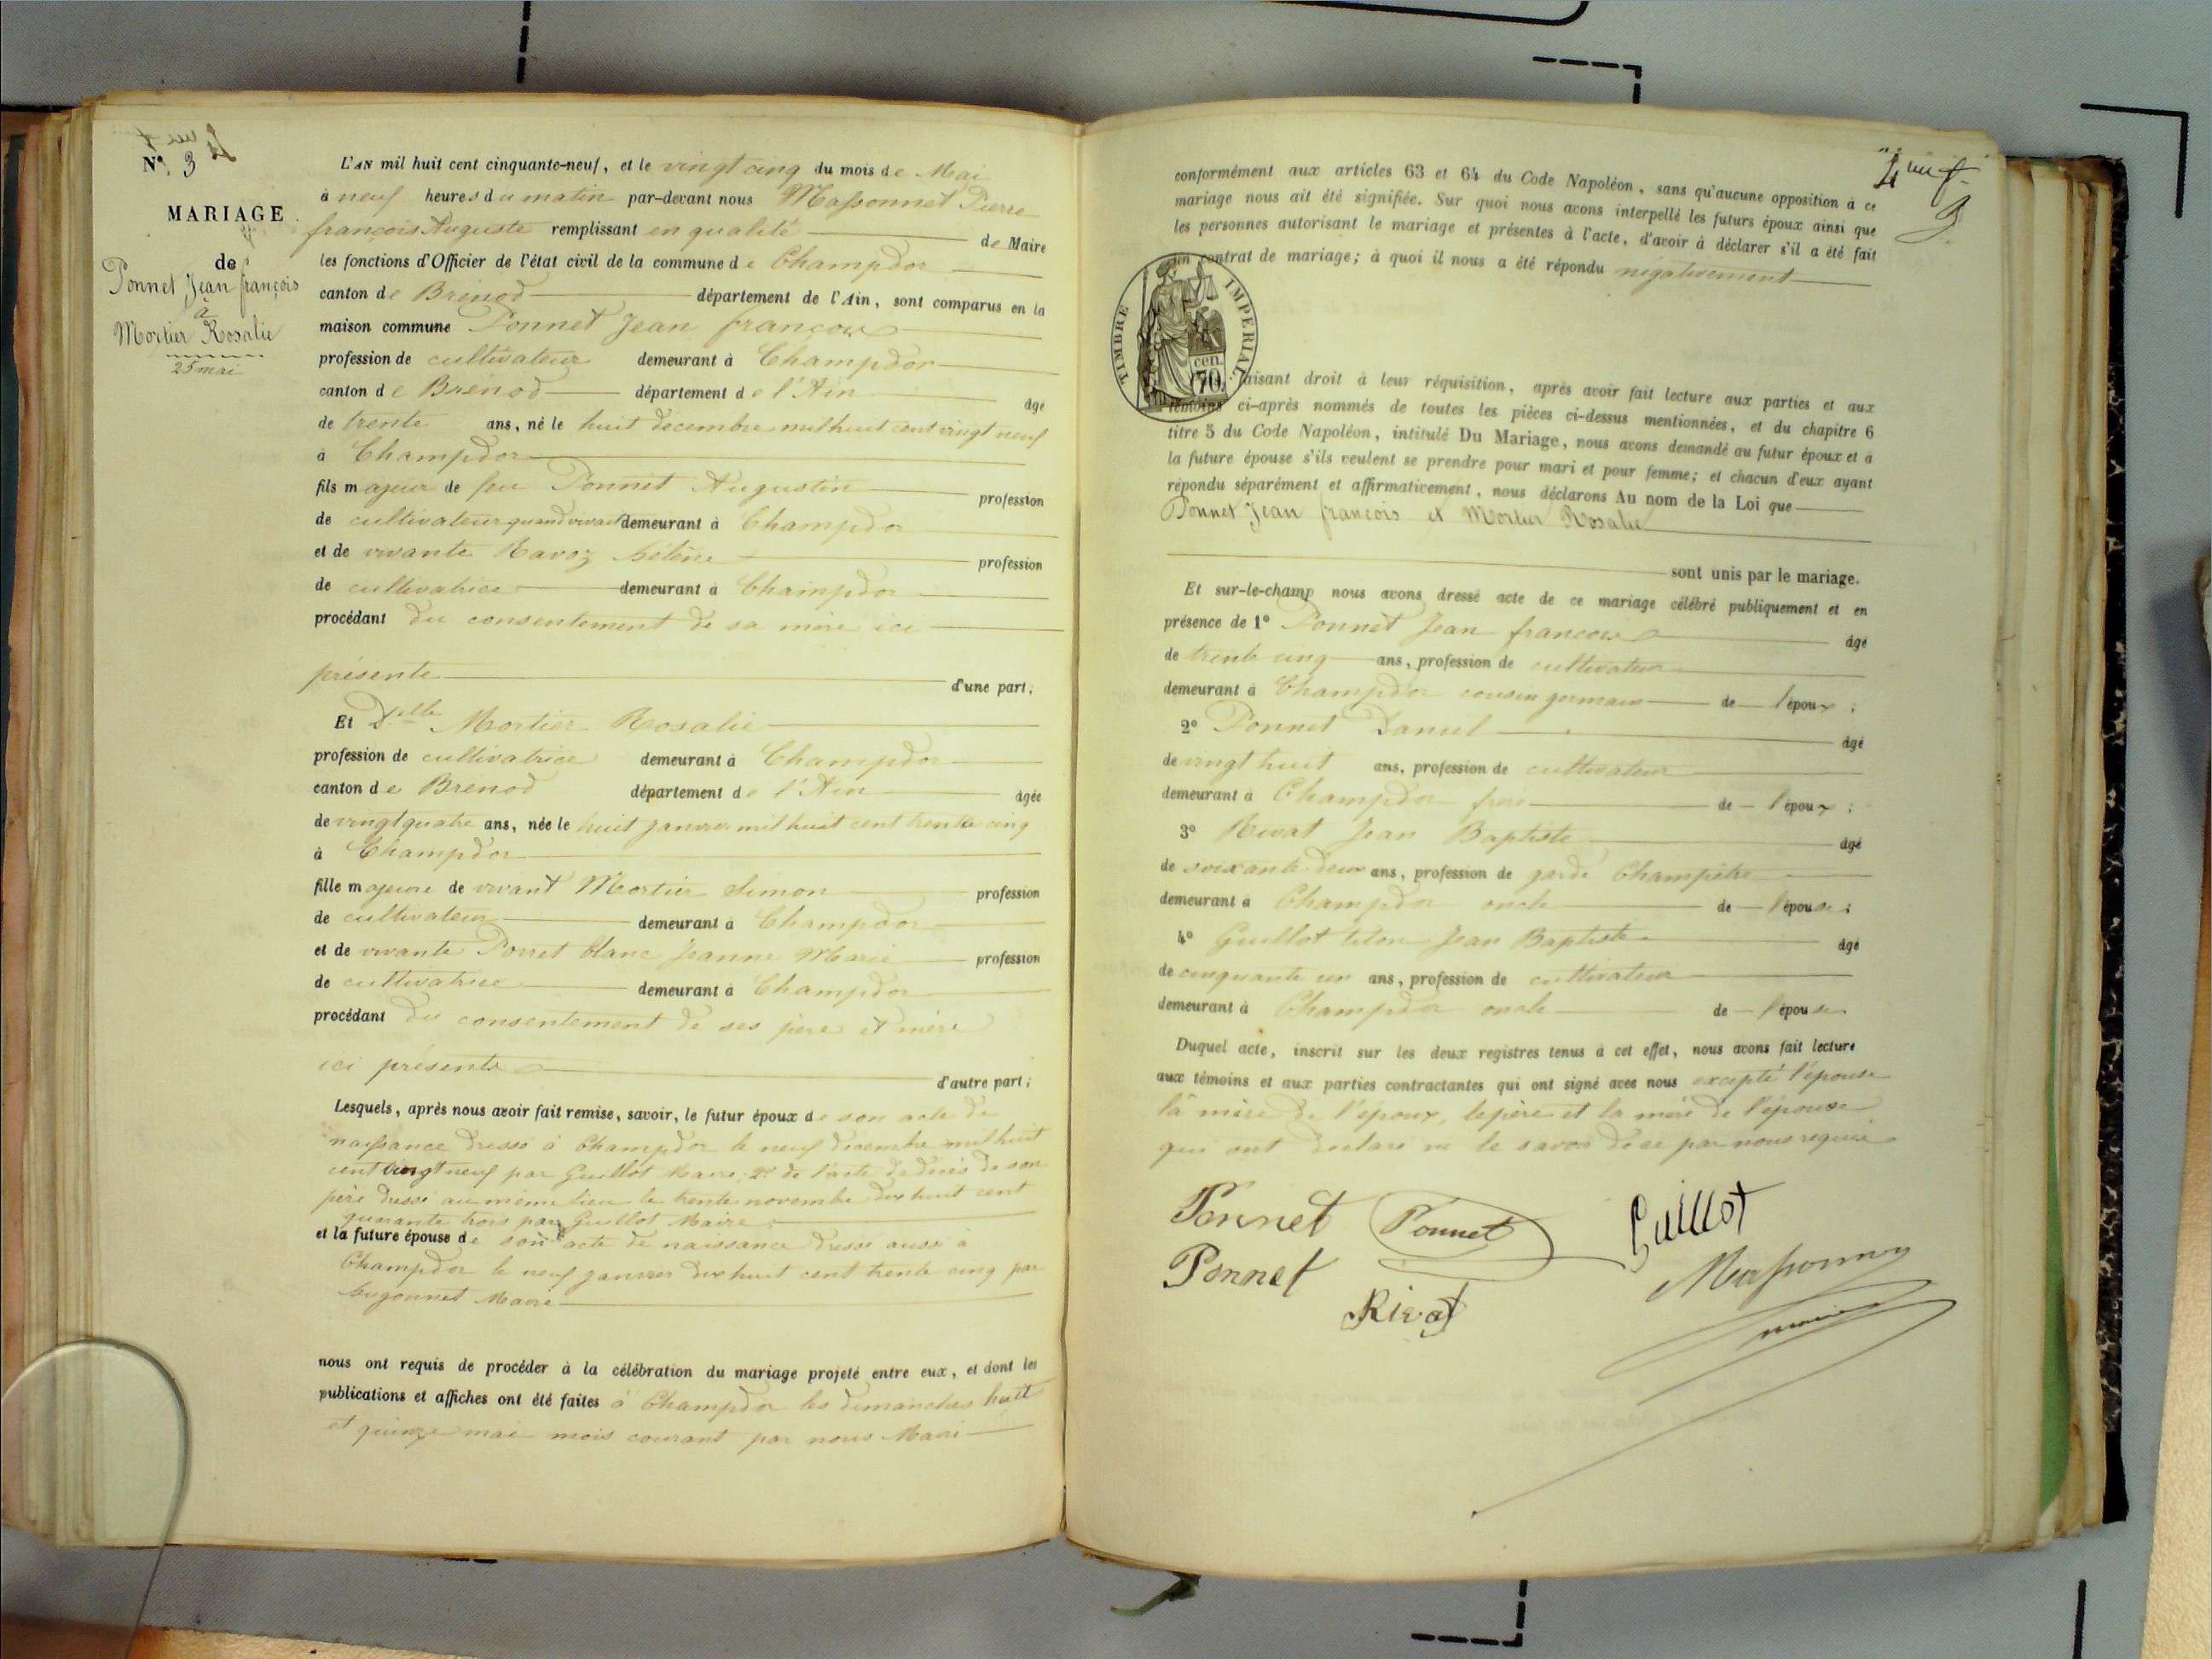 N° 3
MARIAGE
de
Ponnet Jean françois
à
Mortier Rosalie
25 mai
L'AN mil huit cent cinquante-neuf, et le vingt cinq du mois de Mai
à neuf heures du matin par-devant nous Massonnet Pierre
françois Auguste remplissant en qualité de Maire
les fonctions d'Officier de l'état civil de la commune de Champdor
canton de Brénod département de l'Ain, sont comparus en la
maison commune Ponnet Jean françois
profession de cultivateur demeurant à Champdor
canton de Brénod département de l'Ain âgé
de trente ans, né le huit decembre mil huit cent vingt neuf
à Champdor
fils majeur de feu Ponnet Augustin profession
de cultivateur quand vivait demeurant à Champdor
et de vivante Ravoz hélène profession
de cultivatrice demeurant à Champdor
procédant du consentement de sa mère ici
présente d'une part;
Et Delle Mortier Rosalie
profession de cultivatrice demeurant à Champdor
canton de Brénod département de l'Ain âgée
de vingt quatre ans, née le huit janvier mil huit cent trente cinq
à Champdor
fille majeure de vivant Mortier Simon profession
de cultivateur demeurant à Champdor
et de vivante Ponnet blanc Jeanne Marie profession
de cultivatrice demeurant à Champdor
procédant du consentement de ses père et mère
ici présents d'autre part;
Lesquels, après nous avoir fait remise, savoir, le futur époux de son acte de
naissance dressé à Champdor le neuf décembre mil huit
cent vingt neuf par Guillot Maire; 2° de l'acte de décès de son
père dressé au même lieu le trente novembre dix huit cent
quarante trois par Guillot Maire
et la future épouse de son acte de naissance dressé aussi à
Champdor le neuf janvier dix huit cent trente cinq par
hugonnet Maire
nous ont requis de procéder à la célébration du mariage projeté entre eux, et dont les
publications et affiches ont été faites à Champdor les dimanches huit
et quinze mai mois courant par nous Maire
conformément aux articles 63 et 64 du Code Napoléon, sans qu'aucune opposition à ce
mariage nous ait été signifiée. Sur quoi nous avons interpellé les futurs époux ainsi que
les personnes autorisant le mariage et présentes à l'acte, d'avoir à déclarer s'il a été fait
un contrat de mariage; à quoi il nous a été répondu négativement
TIMBRE IMPERIAL
70 cen.
faisant droit à leur réquisition, après avoir fait lecture aux parties et aux
témoins ci-après nommés de toutes les pièces ci-dessus mentionnées, et du chapitre 6
titre 5 du Code Napoléon, intitulé Du Mariage, nous avons demandé au futur époux et à
la future épouse s'ils veulent se prendre pour mari et pour femme; et chacun d'eux ayant
répondu séparément et affirmativement, nous déclarons Au nom de la Loi que
Ponnet Jean francois et Mortier Rosalie
sont unis par le mariage.
Et sur-le-champ nous avons dressé acte de ce mariage célébré publiquement et en
présence de 1° Ponnet Jean francois âgé
de trente cinq ans, profession de cultivateur
demeurant à Champdor cousin germain de l'époux;
2° Ponnet Daniel âgé
de vingt huit ans, profession de cultivateur
demeurant à Champdor frère de l'époux;
3° Rivat Jean Baptiste âgé
de soixante deux ans, profession de garde Champêtre
demeurant à Champdor oncle de l'épouse;
4° Guillot Jean Baptiste âgé
de cinquante un ans, profession de cultivateur
demeurant à Champdor oncle de l'épouse
Duquel acte, inscrit sur les deux registres tenus à cet effet, nous avons fait lecture
aux témoins et aux parties contractantes qui ont signé avec nous excepté l'épouse
la mère de l'époux, le père et la mère de l'épouse
qui ont déclaré ne le savoir de ce par nous requis
Ponnet Ponnet Guillot
Ponnet Massonnet
Rivat maire